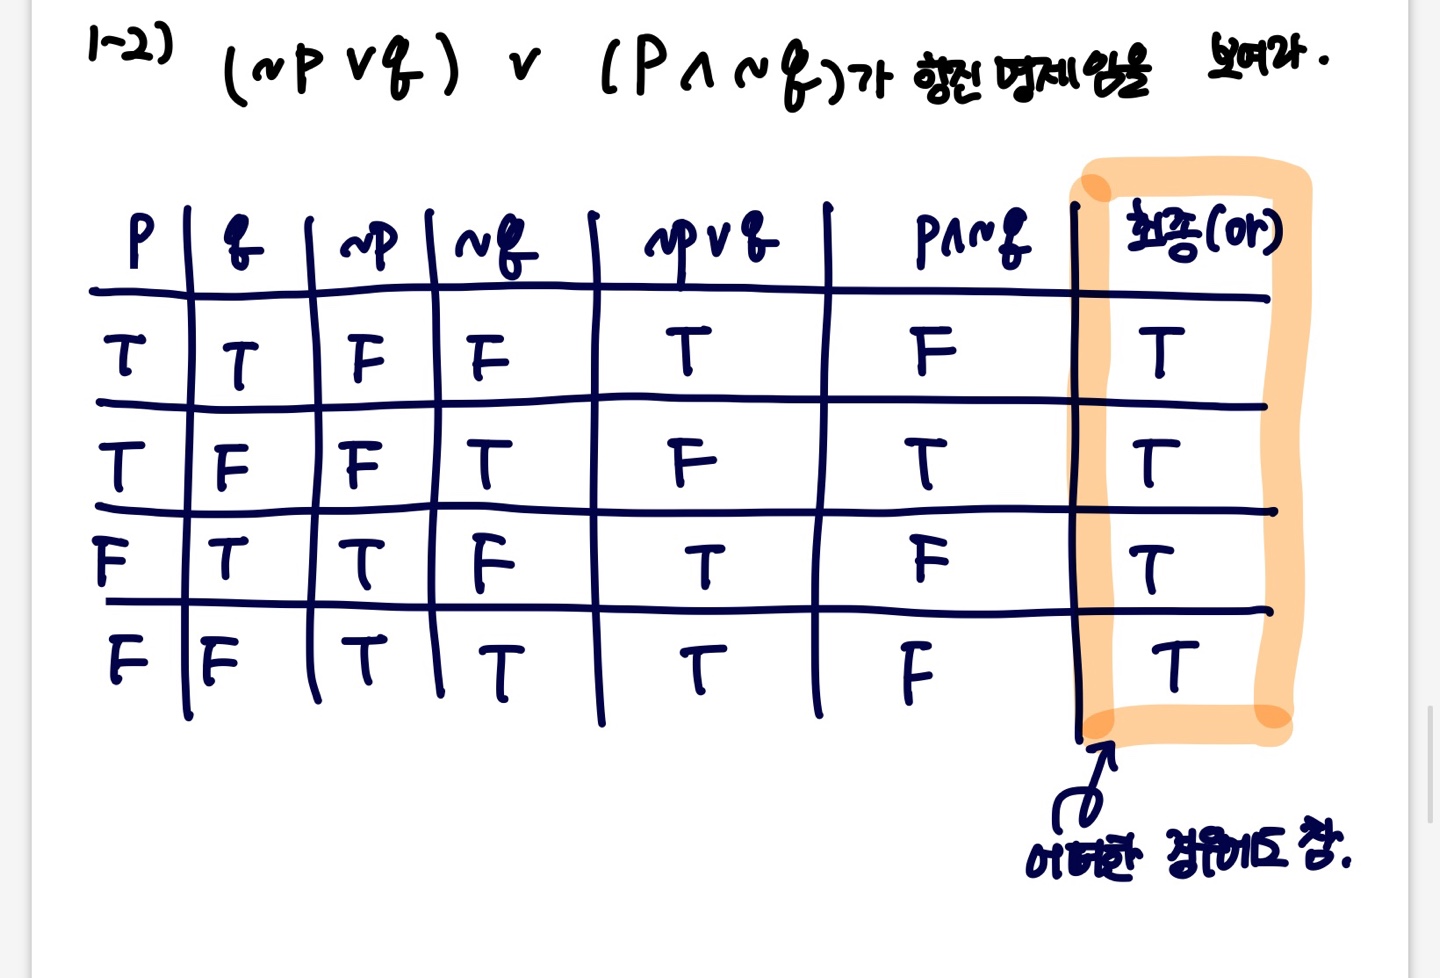 1-2) (~p∨q) ∨ (p∧~q)가 항진 명제임을 보여라.
p q ~p ~q ~p∨q p∧~q 최종(or)
T T F F T F T
T F F T F T T
F T T F T F T
F F T T T F T
어떠한 경우에도 참.